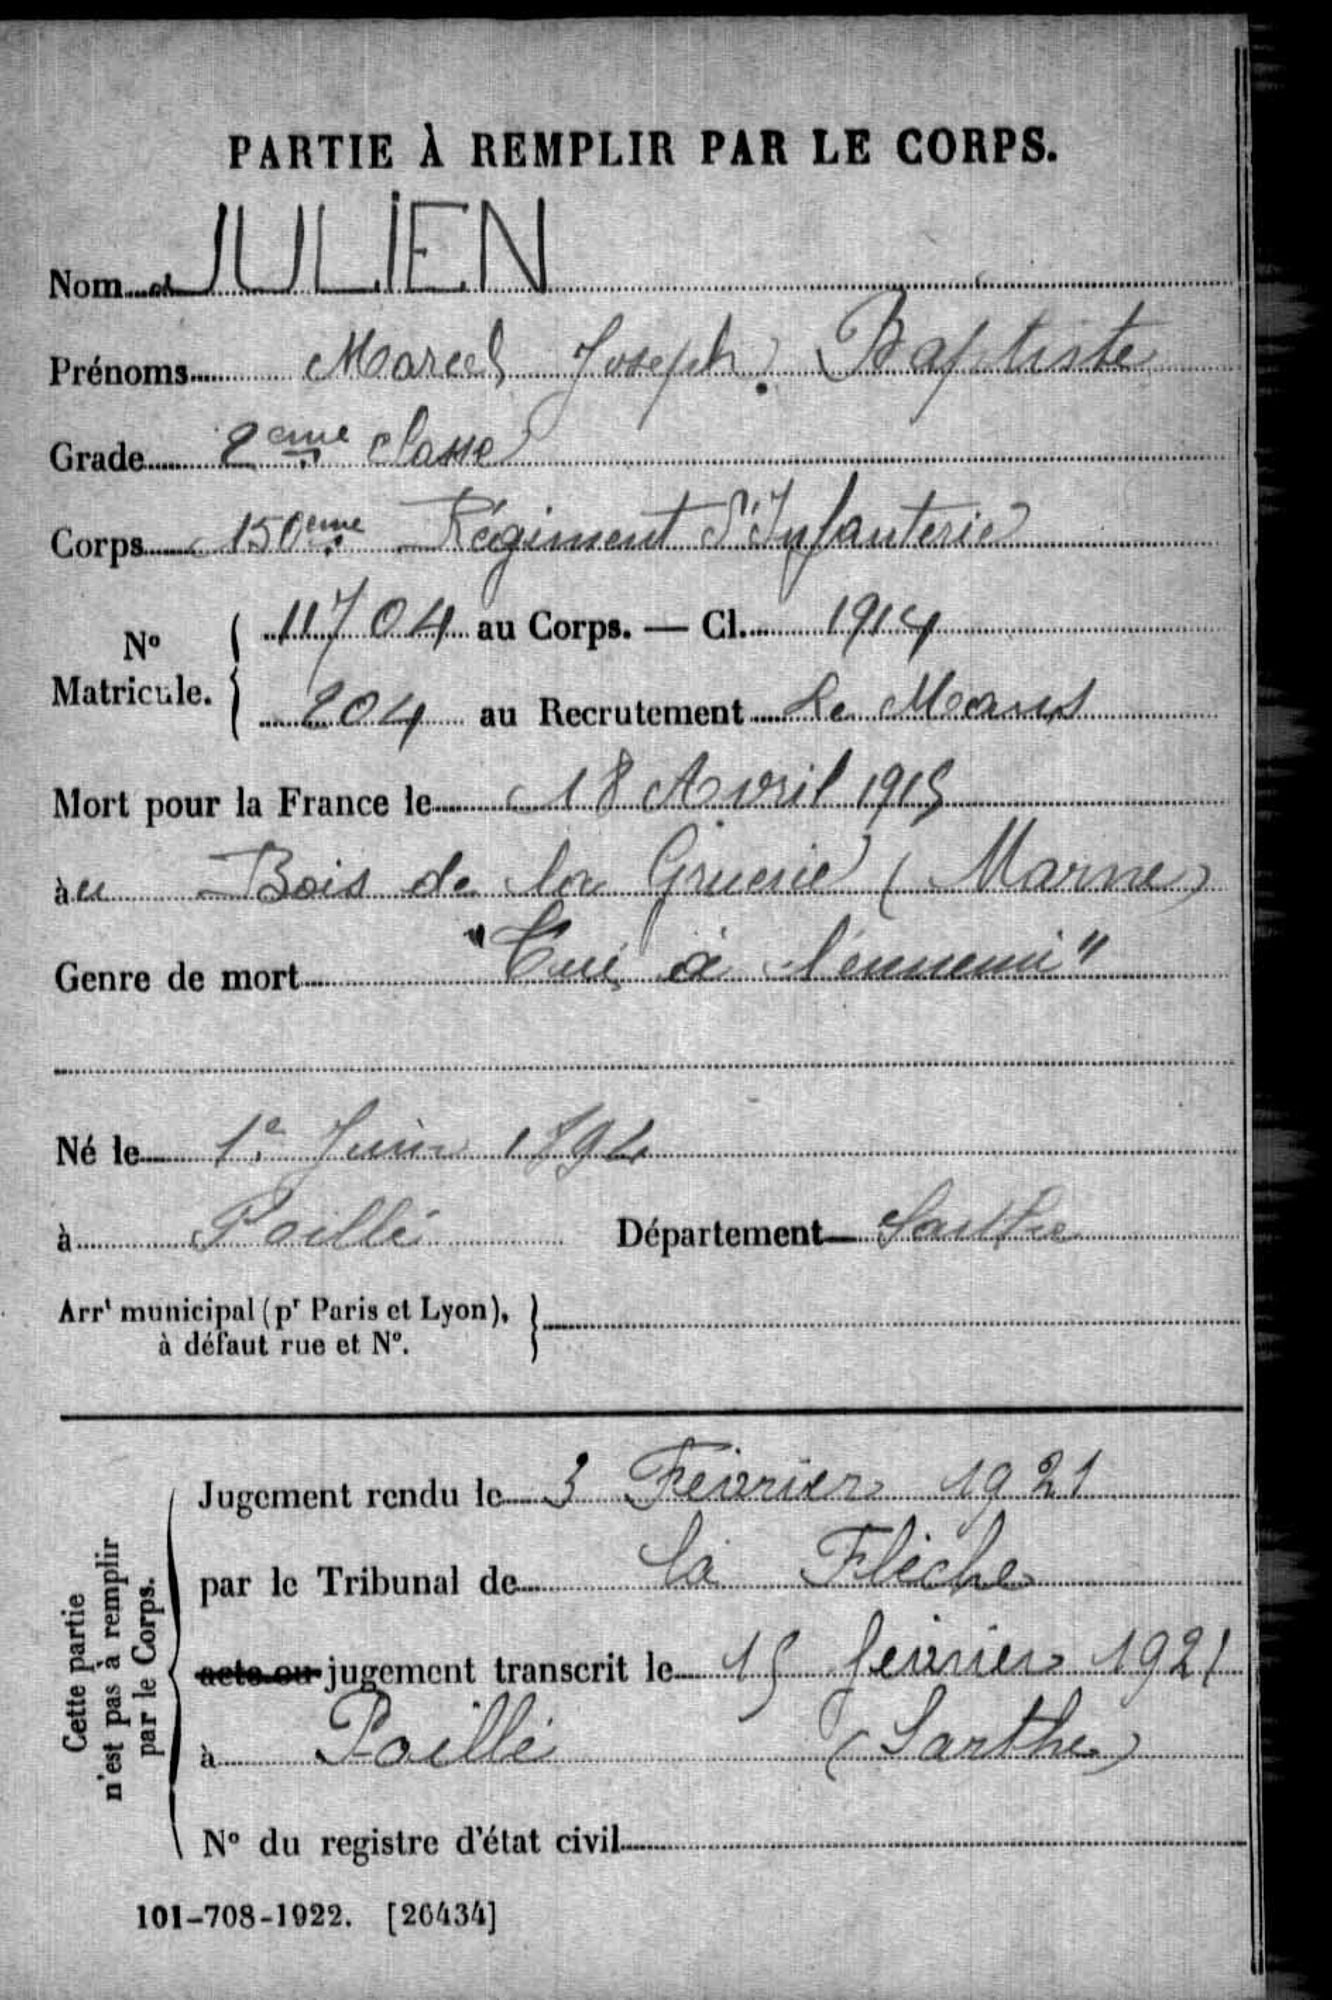 PARTIE À REMPLIR PAR LE CORPS.
Nom JULIEN
Prénoms Marcel Joseph Baptiste
Grade 2eme classe
Corps 150eme Régiment d'Infanterie
N° Matricule. { 11704 au Corps. — Cl. 1914
204 au Recrutement Le Mans
Mort pour la France le 18 Avril 1915
au Bois de la Gruerie (Marne)
Genre de mort "Tué à l'ennemi"
Né le 1e Juin 1894
à Poillé Département Sarthe
Arrt municipal (pr Paris et Lyon), }
à défaut rue et N°.
Cette partie
n'est pas à remplir
par le Corps.
Jugement rendu le 3 Février 1921
par le Tribunal de La Flèche
acte ou jugement transcrit le 15 février 1921
à Poillé (Sarthe)
N° du registre d'état civil
101-708-1922. [26434]